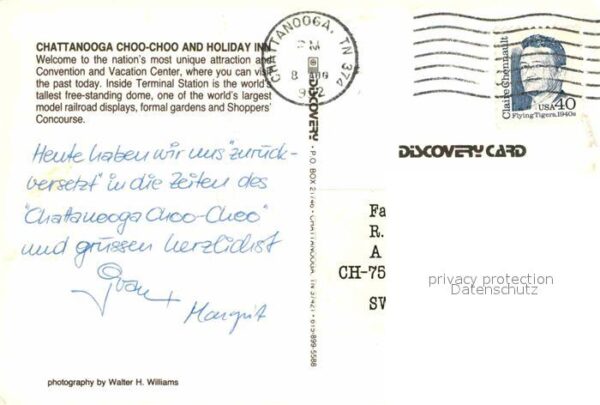 CHATTANOOGA CHOO-CHOO AND HOLIDAY INN
Welcome to the nation's most unique attraction and
Convention and Vacation Center, where you can visit
the past today. Inside Terminal Station is the world's
tallest free-standing dome, one of the world's largest
model railroad displays, formal gardens and Shoppers'
Concourse.
Heute haben wir uns "zurück-
versetzt" in die Zeiten des
"Chatanooga Choo-Choo"
und grüssen herzlichst
Ivan +
Margrit
photography by Walter H. Williams
CHATTANOOGA, TN 374
PM
8 AUG
DISCOVERY • P.O. BOX 21746 • CHATTANOOGA, TN 37421 • 615-899-5588
Claire Chennault
USA 40
Flying Tigers, 1940s
DISCOVERY CARD
Fa
R.
A
CH-75
SW
privacy protection
Datenschutz